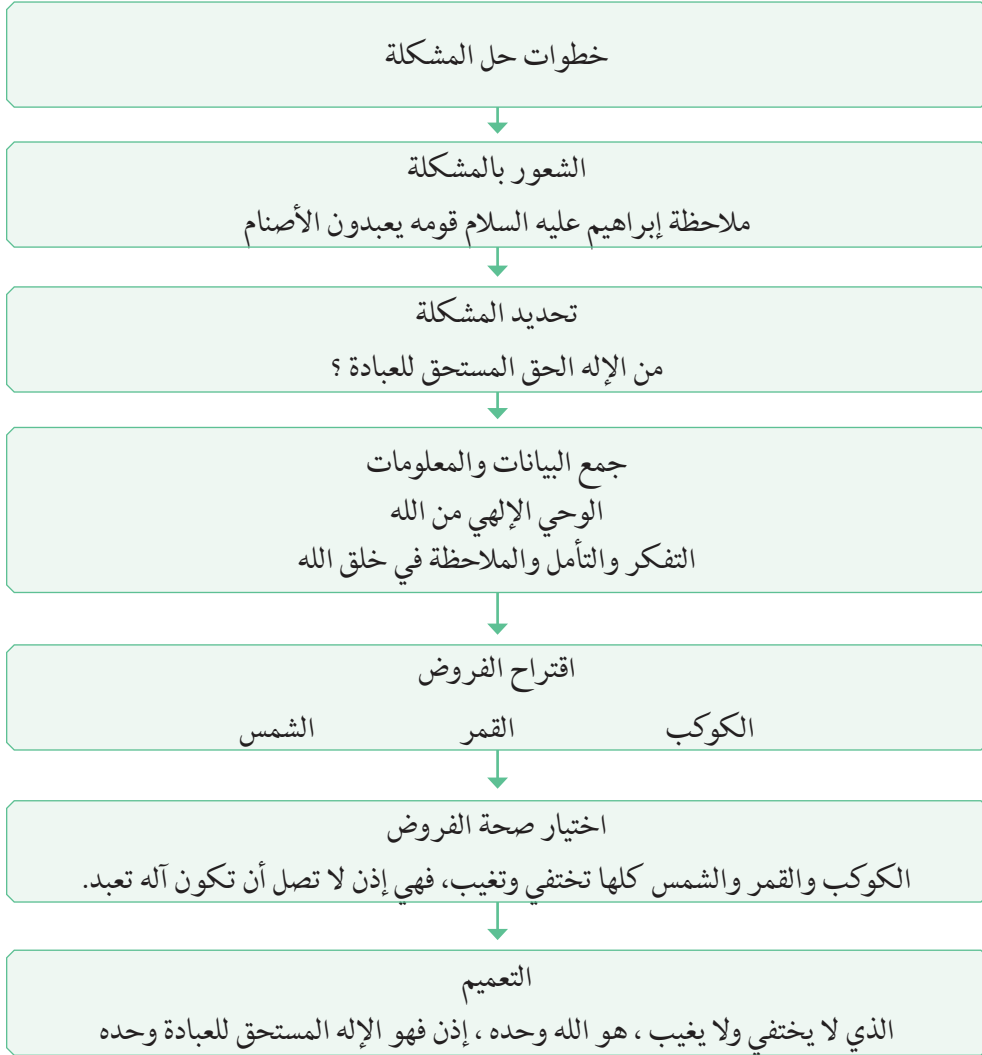 خطوات حل المشكلة
الشعور بالمشكلة
ملاحظة إبراهيم عليه السلام قومه يعبدون الأصنام
تحديد المشكلة
من الإله الحق المستحق للعبادة ؟
جمع البيانات والمعلومات
الوحي الإلهي من الله
التفكر والتأمل والملاحظة في خلق الله
اقتراح الفروض
الكوكب القمر الشمس
اختيار صحة الفروض
الكوكب والقمر والشمس كلها تختفي وتغيب، فهي إذن لا تصل أن تكون آله تعبد.
التعميم
الذي لا يختفي ولا يغيب ، هو الله وحده ، إذن فهو الإله المستحق للعبادة وحده